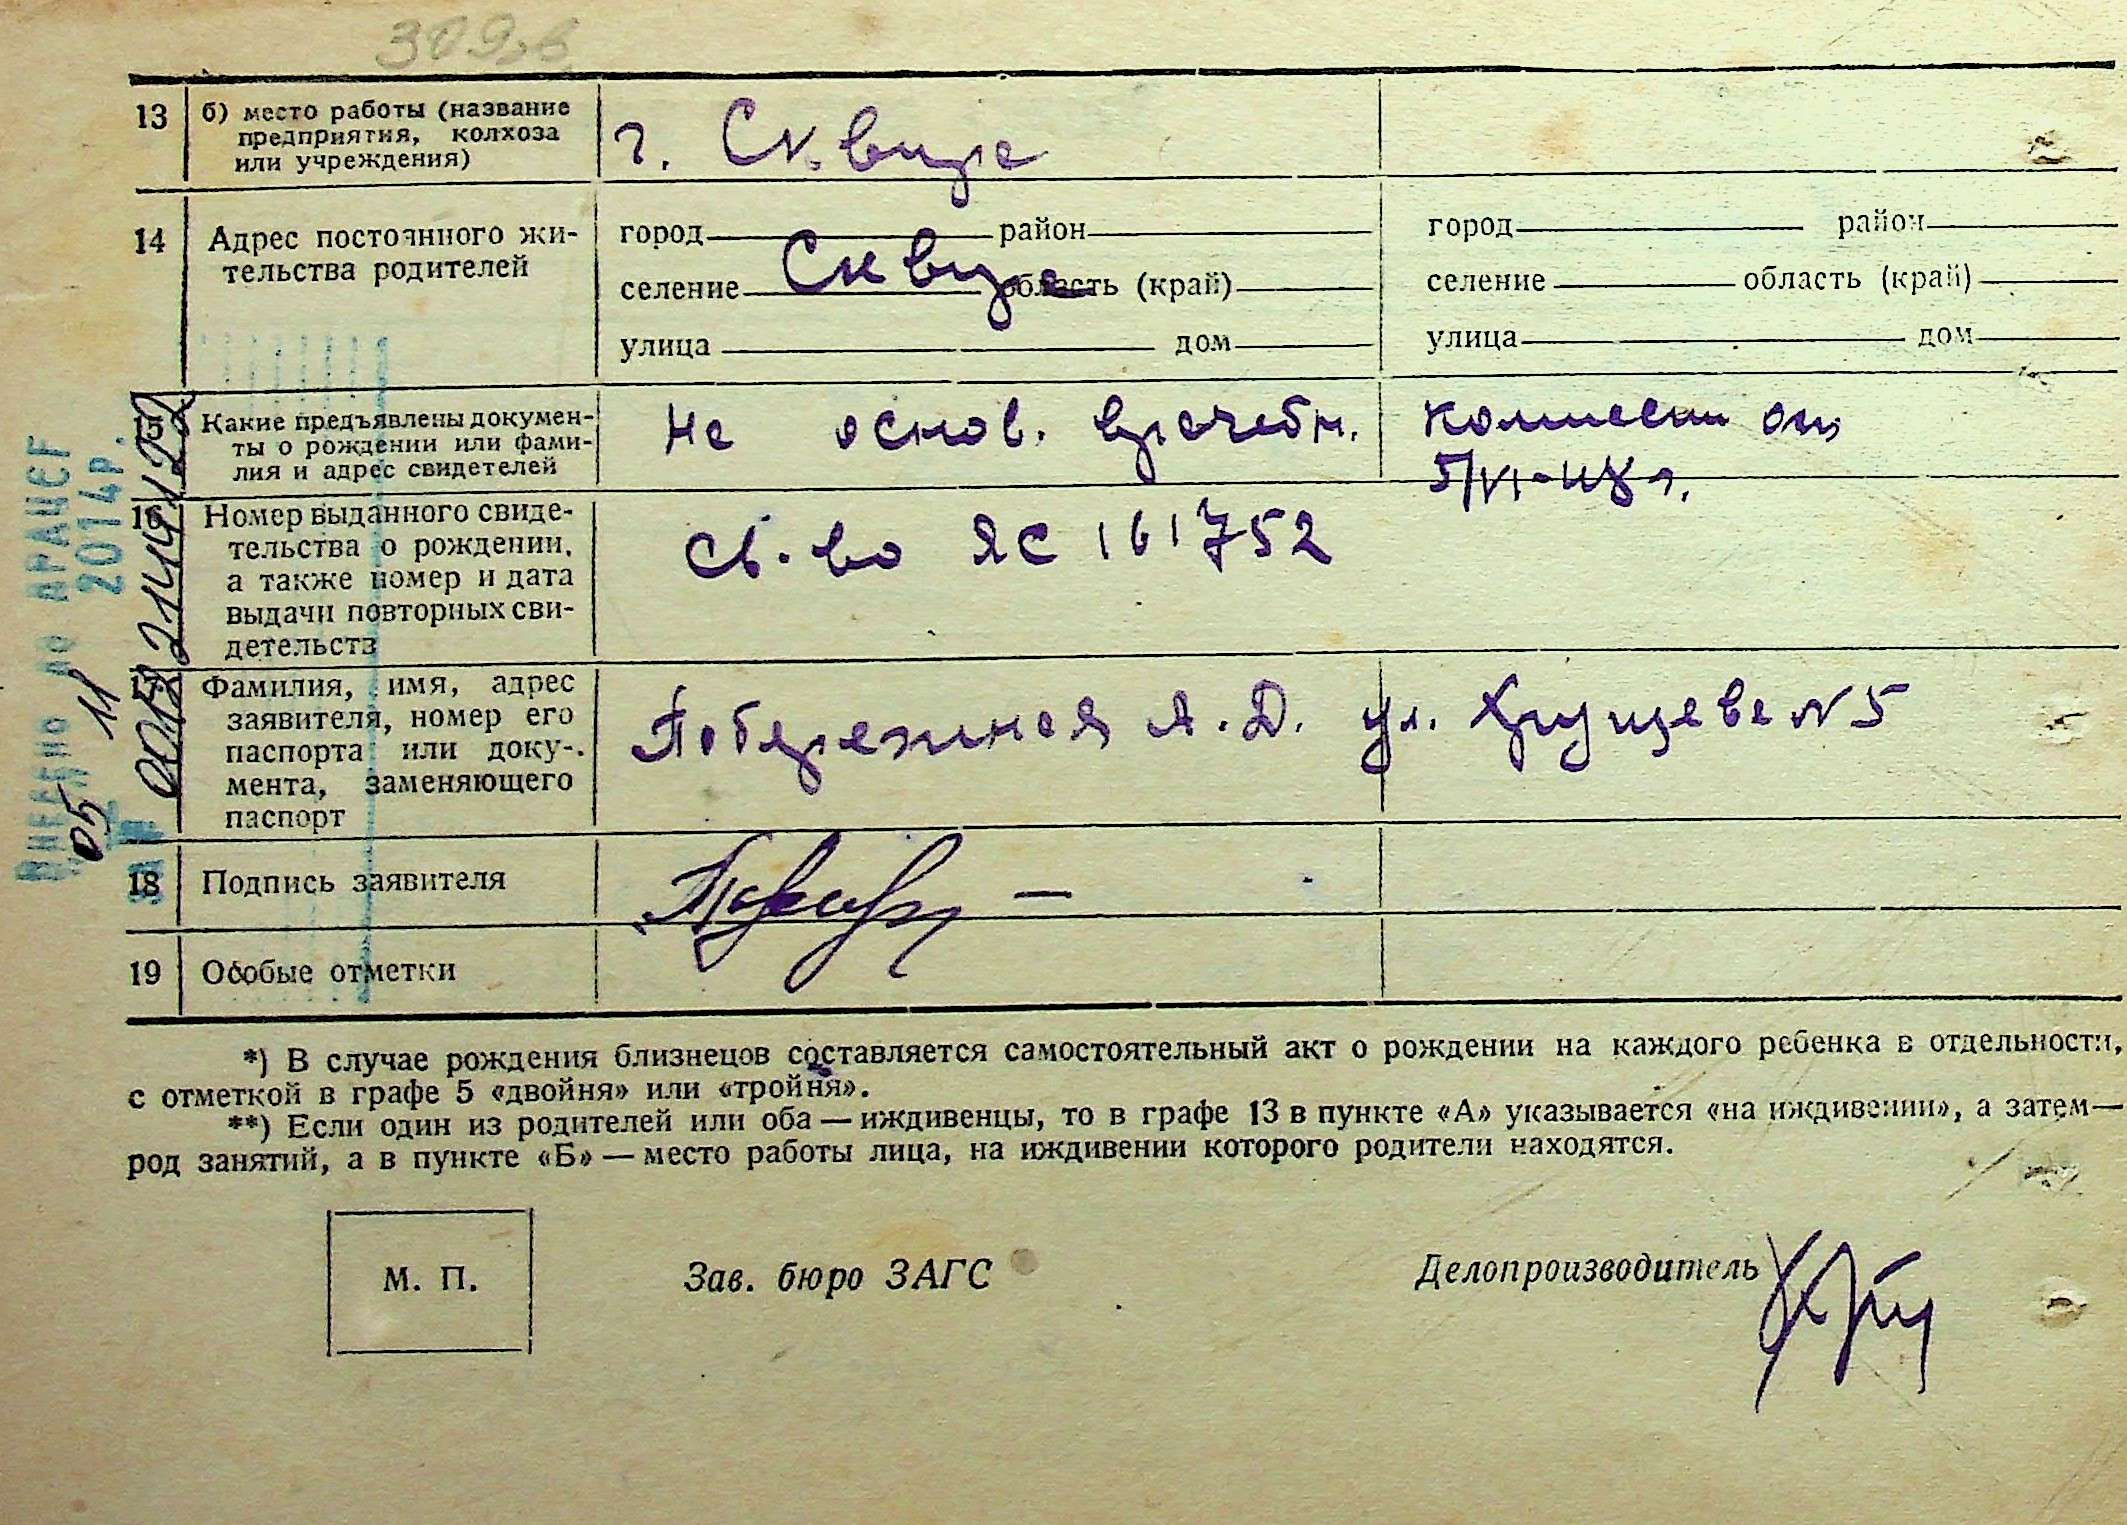 309,в
13 б) место работы (название
предприятия, колхоза
или учреждения)
г. Сквире
14 Адрес постоянного жи-
тельства родителей
город район
Сквире
селение область (край)
улица дом
город район
селение область (край)
улица дом
15 Какие предъявлены докумен-
ты о рождении или фами-
лия и адрес свидетелей
На основ. врачебн. комиссии от
5/VI-48 г.
16 Номер выданного свиде-
тельства о рождении,
а также номер и дата
выдачи повторных сви-
детельств
св-во ЯС 161752
17 Фамилия, имя, адрес
заявителя, номер его
паспорта или доку-
мента, заменяющего
паспорт
Побережная А. Д. ул. Хрущева N 5
18 Подпись заявителя
19 Особые отметки
Внесено до ДРАЦСГ
05 11 2014р.
*) В случае рождения близнецов составляется самостоятельный акт о рождении на каждого ребенка в отдельности,
с отметкой в графе 5 «двойня» или «тройня».
**) Если один из родителей или оба — иждивенцы, то в графе 13 в пункте «А» указывается «на иждивении», а затем —
род занятий, а в пункте «Б» — место работы лица, на иждивении которого родители находятся.
М. П.
Зав. бюро ЗАГС
Делопроизводитель